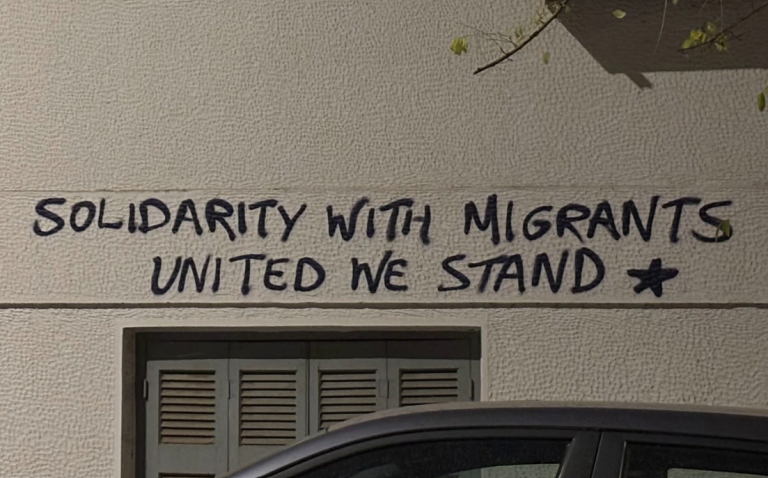 SOLIDARITY WITH MIGRANTS
UNITED WE STAND ★